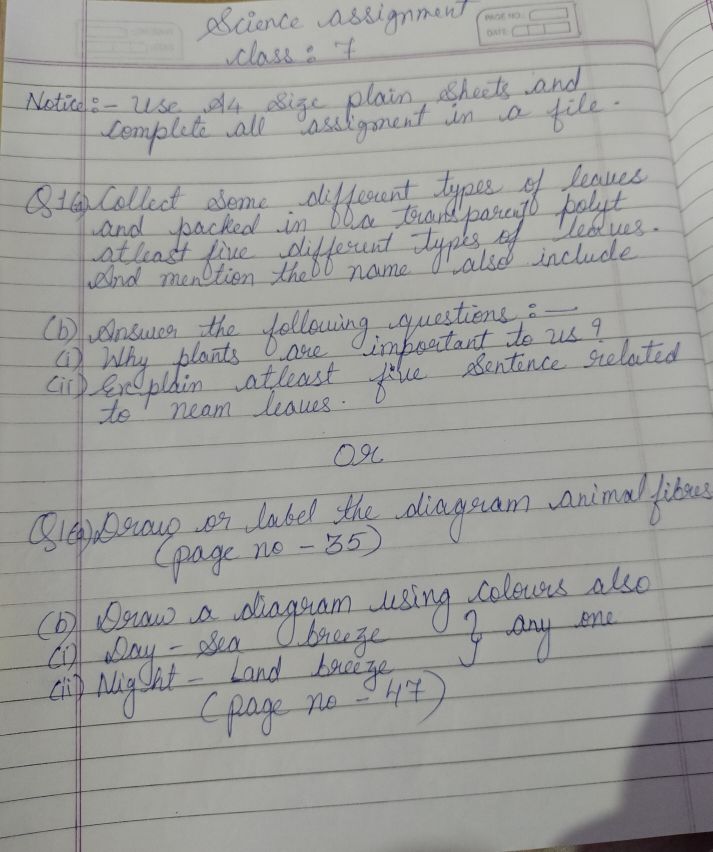 Science assignment
PAGE NO.:
DATE:
Class : 7
Notice :- Use A4 size plain sheets and
Complete all assigment in a file.
Q1(a) Collect some different types of leaves
and packed in a transparent polyt
atleast five different types of leaves.
And mention the name also include
(b) Answer the following questions :-
(i) Why plants are important to us ?
(ii) Explain atleast five sentence related
to neam leaves.
OR
Q1(a) Draw or label the diagram animal fibres
(page no - 35)
(b) Draw a diagram using colours also
(i) Day - Sea breeze } any one
(ii) Night - Land breeze
(page no - 47)